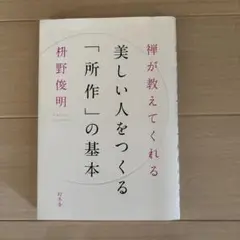 禅が教えてくれる
美しい人をつくる
「所作」の基本
枡野俊明
幻冬舎